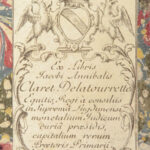 Ex Libris
Jacobi Annibalis
Claret Delatourrette
Equitis, Regi a consiliis
in Suprema Lugdunensi
monetalium Judicum
curiâ præsidis,
capitalium rerum
Prætoris Primarii